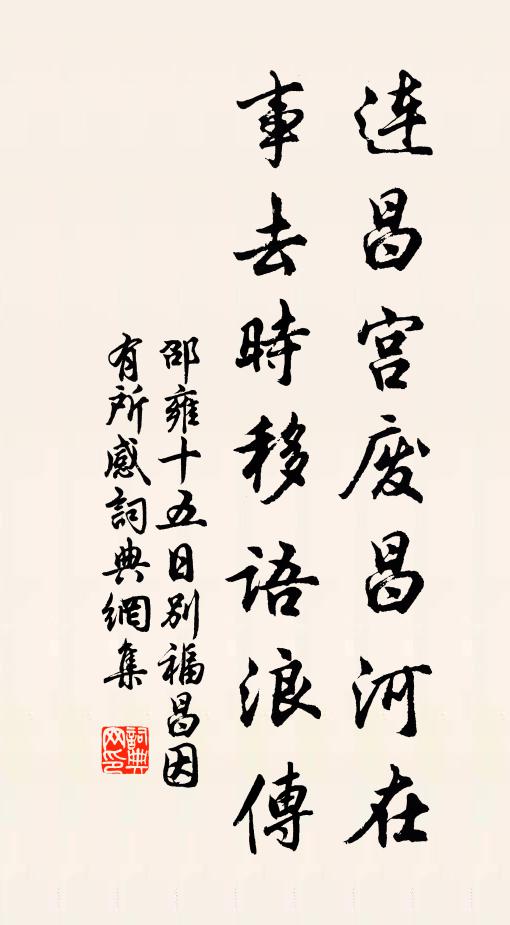 连昌宫废昌河在
事去時移語浪傳
邵雍十五日别福昌因
有所感詞典網集
詞典网印